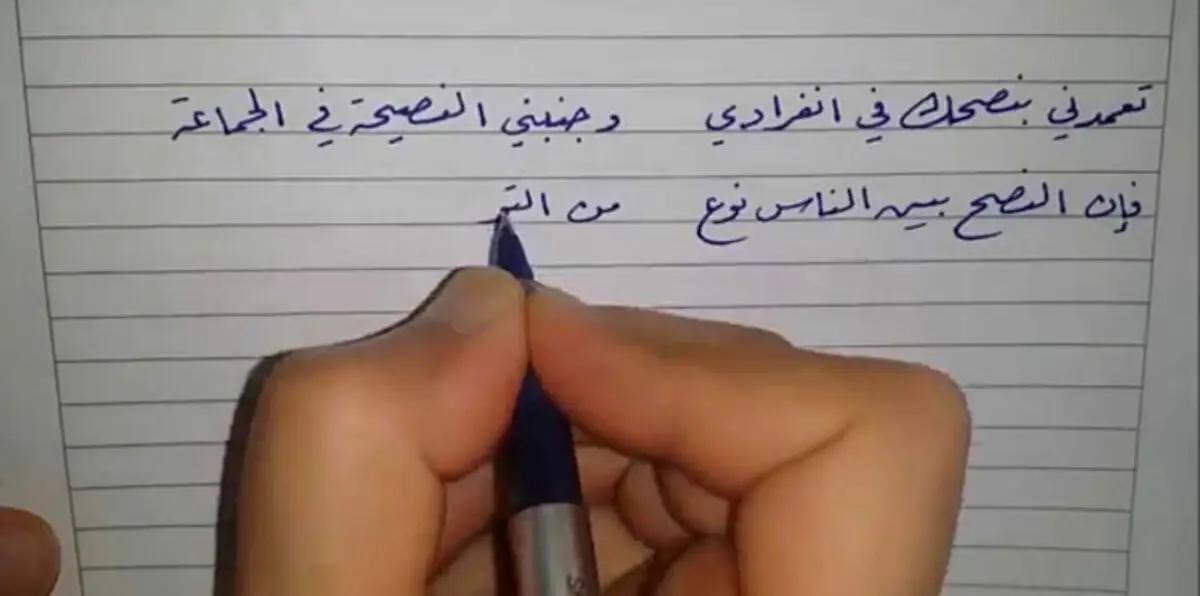 تعمدني بنصحك في انفرادي وجنبني النصيحة في الجماعة
فإن النصح بين الناس نوع من التو